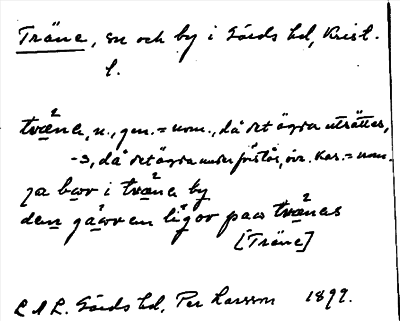 Träne, sn och by i Gärds hd, Krist.
l.
träna, n., gen. = nom., då det ägda utsättes,
-s, då det ägda underförstås, övr. kas. = nom.
ja bor i träna by
den gåren ligor paa tränas
[Träne]
L A L. Gärds hd, Per Larsson 1899.